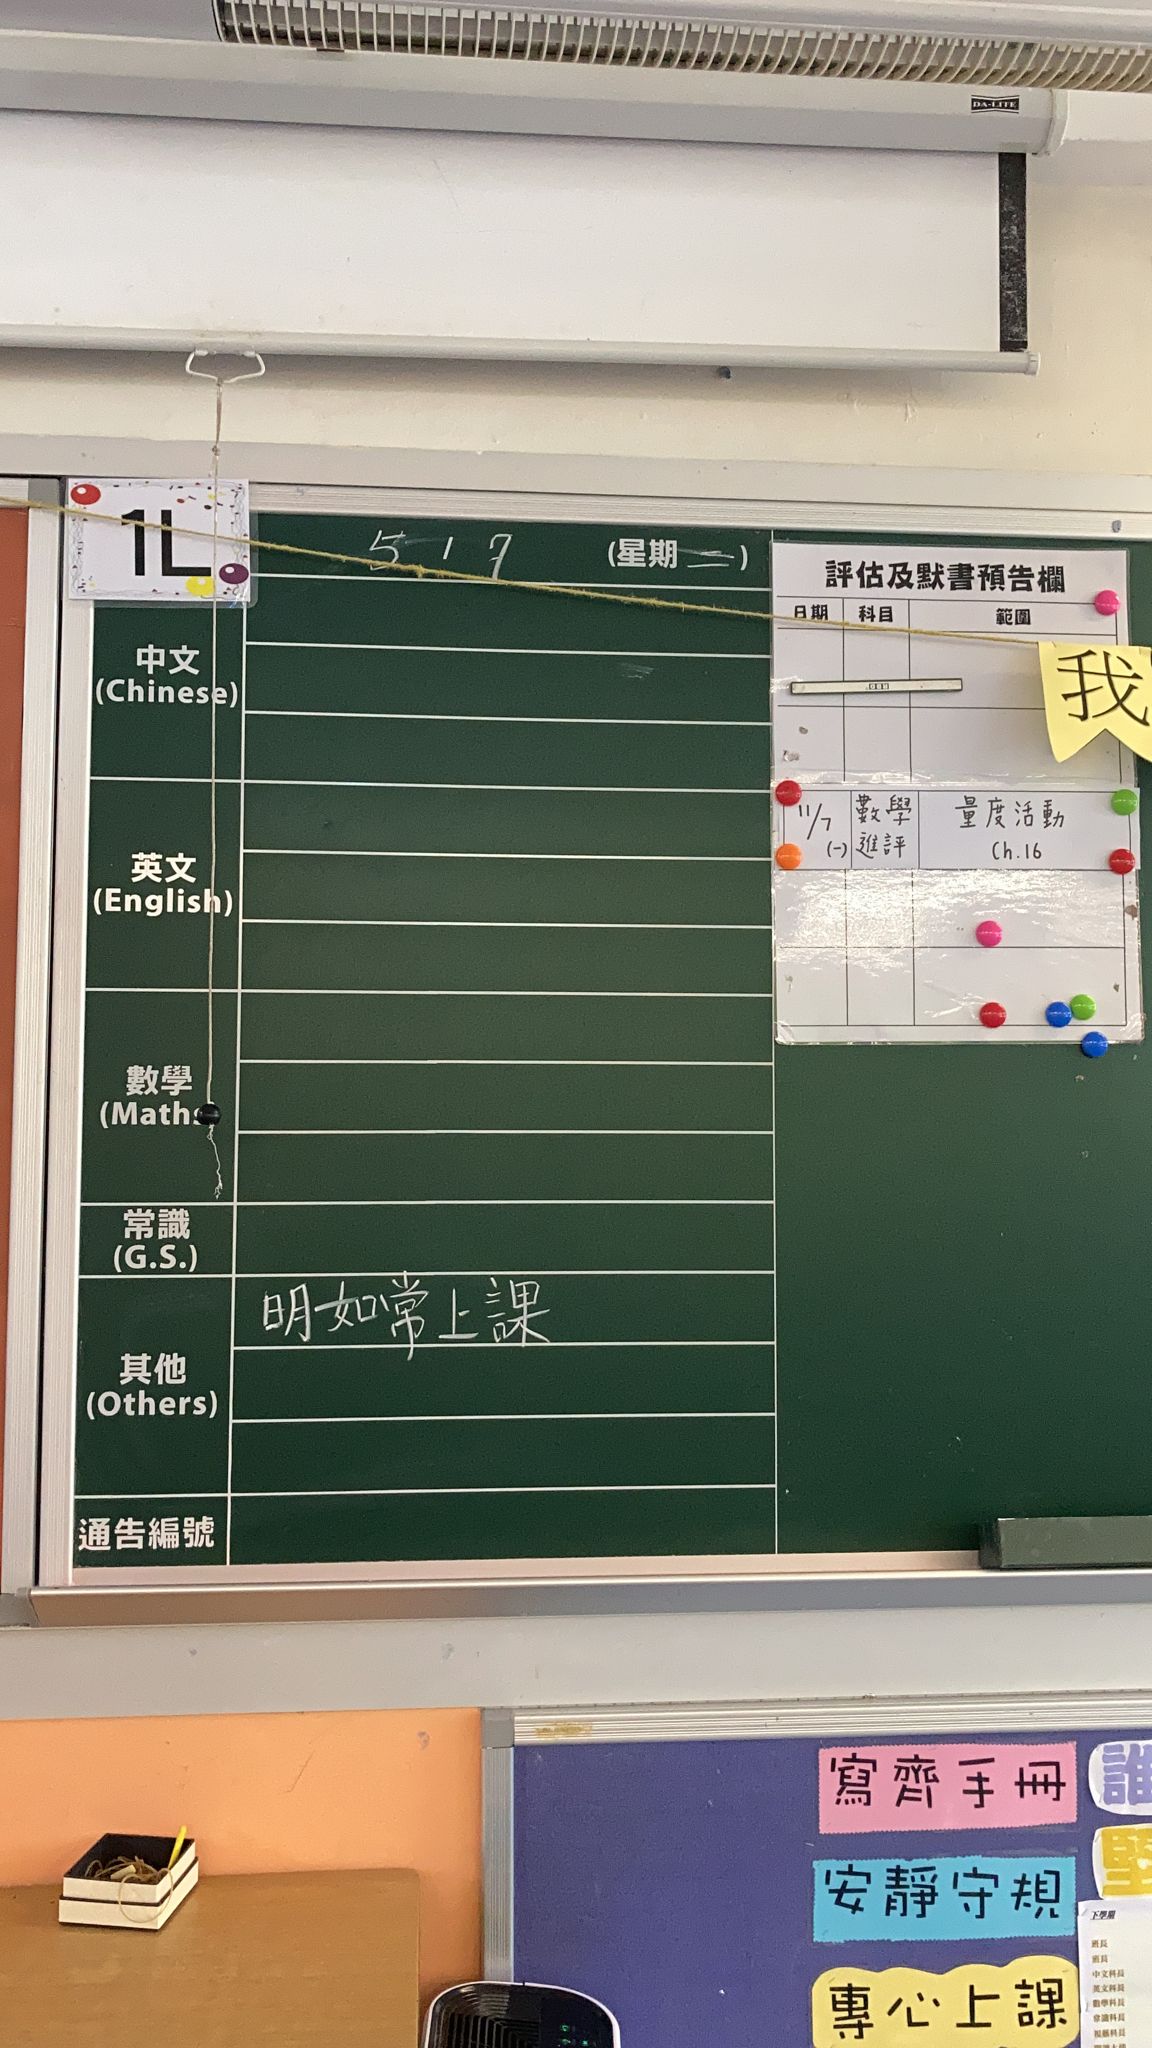 DA-LITE
1L
5 / 7 (星期二)
中文
(Chinese)
英文
(English)
數學
(Maths
常識
(G.S.)
其他
(Others)
明如常上課
通告編號
評估及默書預告欄
日期 科目 範圍
11/7 (一) 數學進評 量度活動 Ch.16
我
寫齊手冊
安靜守規
專心上課
誰
堅
下學期
班長
班長
中文科長
英文科長
數學科長
常識科長
視藝科長